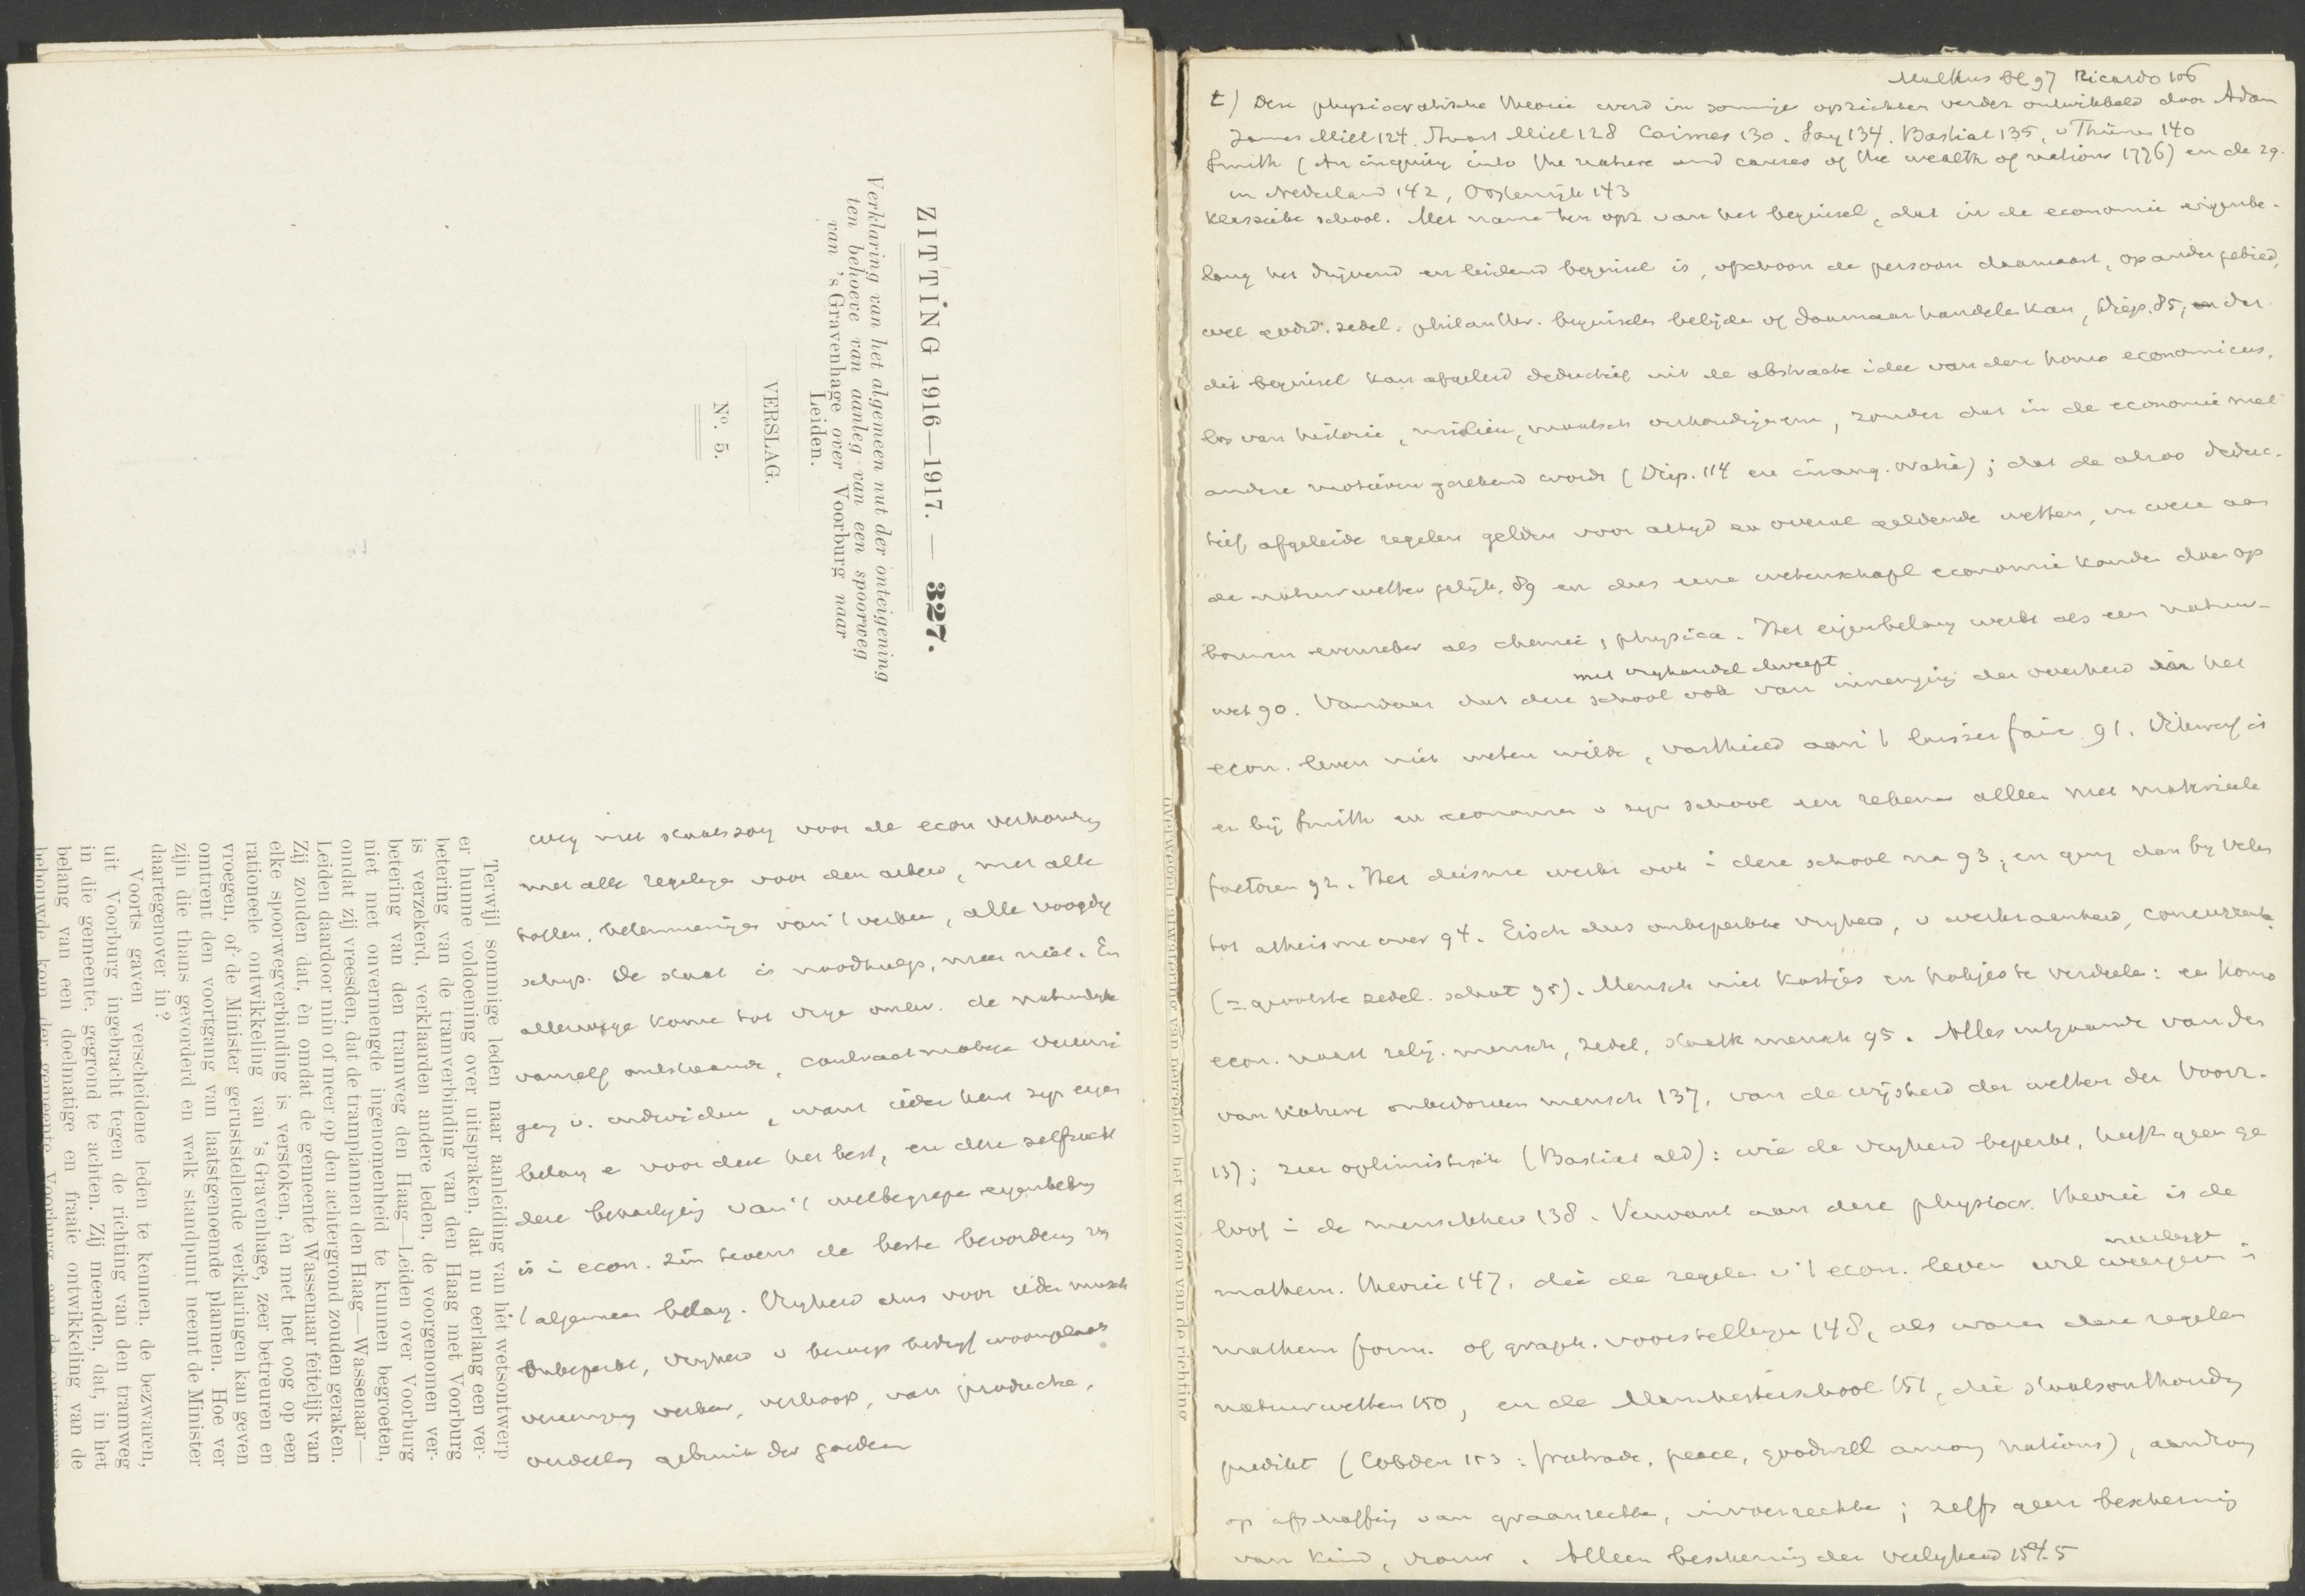 ZITTING 1916—1917. — 327.
Verklaring van het algemeen nut der onteigening
ten behoeve van aanleg van een spoorweg
van 's Gravenhage over Voorburg naar
Leiden.
VERSLAG.
No. 5.
Terwijl sommige leden naar aanleiding van het wetsontwerp
er hunne voldoening over uitspraken, dat nu eerlang een ver-
betering van de tramverbinding van den Haag met Voorburg
is verzekerd, verklaarden andere leden, de voorgenomen ver-
betering van den tramweg den Haag—Leiden over Voorburg
niet met onvermengde ingenomenheid te kunnen begroeten,
omdat zij vreesden, dat de tramplannen den Haag—Wassenaar—
Leiden daardoor min of meer op den achtergrond zouden geraken.
Zij zouden dat, èn omdat de gemeente Wassenaar feitelijk van
elke spoorwegverbinding is verstoken, èn met het oog op een
rationeele ontwikkeling van 's Gravenhage, zeer betreuren en
vroegen, of de Minister geruststellende verklaringen kan geven
omtrent den voortgang van laatstgenoemde plannen. Hoe ver
zijn die thans gevorderd en welk standpunt neemt de Minister
daartegenover in?
Voorts gaven verscheidene leden te kennen, de bezwaren,
uit Voorburg ingebracht tegen de richting van den tramweg
in die gemeente, gegrond te achten. Zij meenden, dat, in het
belang van een doelmatige en fraaie ontwikkeling van de
bebouwde kom der gemeente Voorburg aan de ontworpen
weg met staatszorg voor de econ verhouding
met alle regeling voor den arbeid, met alle
tollen, belemmeringen van 't verkeer, alle voogdij
schap. De staat is noodhulp, meer niet. En
allerwege kome tot vrije ontw. de natuurlijke
vanzelf ontstaande, contractmatige vereeni
ging v. individuen, want ieder kent zijn eigen
belang en voor deze het best, en deze zelfzucht
deze bevordering van 't welbegrepen eigenbelang
is in econ. zin tevens de beste bevordering van
't algemeen belang. Vrijheid dus voor ieder mensch
onbeperkt, vrijheid v beroep bedrijf woonplaats
vereeniging verkeer, verkoop, van productie,
verdeeling gebruik der goederen
Malthus bl 97 Ricardo 106
t) Deze physiocratische theorie werd in sommige opzichten verder ontwikkeld door Adam
James Mill 124. Stuart Mill 128 Cairnes 130. Say 134. Bastiat 135, v Thünen 140
Smith (An inquiry into the nature and causes of the wealth of nations 1776) en de zg.
in Nederland 142, Oostenrijk 143
klassieke school. Met name ten opz van het beginsel, dat in de economie eigenbe-
lang het drijvend en leidend beginsel is, ofschoon de persoon daarnaast, op ander gebied,
wel godsd. zedel. philanthr. beginselen belijden of daarnaar handelen kan, Diep. 85, en dat
dit beginsel kan afgeleid deductief uit de abstracte idee van den homo economicus,
los van historie, milieu, maatsch verhoudingen enz, zonder dat in de economie met
andere motieven gerekend wordt (Diep. 114 en inaug. oratie); dat de alzoo deduc-
tief afgeleide regelen gelden voor altijd en overal geldende wetten, in wezen aan
de natuurwetten gelijk, 89 en dus eene wetenschapl economie konden doen op
bouwen evenzeker als chemie, physica. Het eigenbelang werkt als een natuur-
wet 90. Vandaar dat deze school ook van inmenging der overheid in het
met vrijhandel dweept
econ. leven niet weten wilde, vasthield aan 't laisser faire 91. Uiterwaard is
er bij Smith en economen v zijn school een rekenen alleen met materieele
factoren 92. Het deisme werkt ook in deze school na 93, en ging dan bij velen
tot atheisme over 94. Eisch dus onbeperkte vrijheid, v werkzaamheid, concurrentie
(= grootste zedel. schat 95). Mensch niet kastjes en hokjes te verdeelen: een homo
econ. naast relig. mensch, zedel, staatk mensch 95. Alles uitgaande van den
van nature onbedorven mensch 137, van de wijsheid der wetten der Voorz.
137; zeer optimistisch (Bastiat ald): wie de vrijheid beperkt, heeft geen ge
loof in de menschheid 138. Verwant aan deze physiocr. theorie is de
mathem. theorie 147, die de regelen v 't econ. leven wil weergeven in
mathem form. of graph. voorstellingen 148, als waren deze regelen
natuurwetten 150, en de Manchesterschool 151, die staatsonthouding
predikt (Cobden 153: freetrade, peace, goodwill among nations), aandrong
op afschaffing van graanrechten, invoerrechten; zelfs geen bescherming
van kind, vrouw. Alleen bescherming der veiligheid 154.5